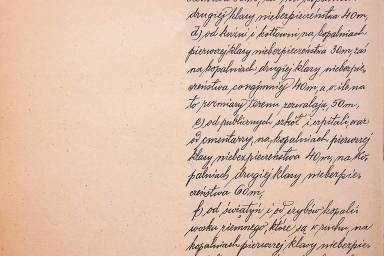 drugiej klasy niebezpieczeństwa 40m,
d) od kuźni i kotłowni, na kopalniach
pierwszej klasy niebezpieczeństwa 30m, zaś
na kopalniach drugiej klasy niebezpie-
czeństwa conajmniej 40m, a o ile na
to rozmiary terenu zezwalają, 50m,
e) od publicznych szkół i szpitali, oraz
od cmentarzy, na kopalniach pierwszej
klasy niebezpieczeństwa 40m, na ko-
palniach drugiej klasy niebezpie-
czeństwa 60m,
f) od świątyń i od szybów kopalń
wosku ziemnego, które są w ruchu, na
kopalniach pierwszej klasy niebezpie-